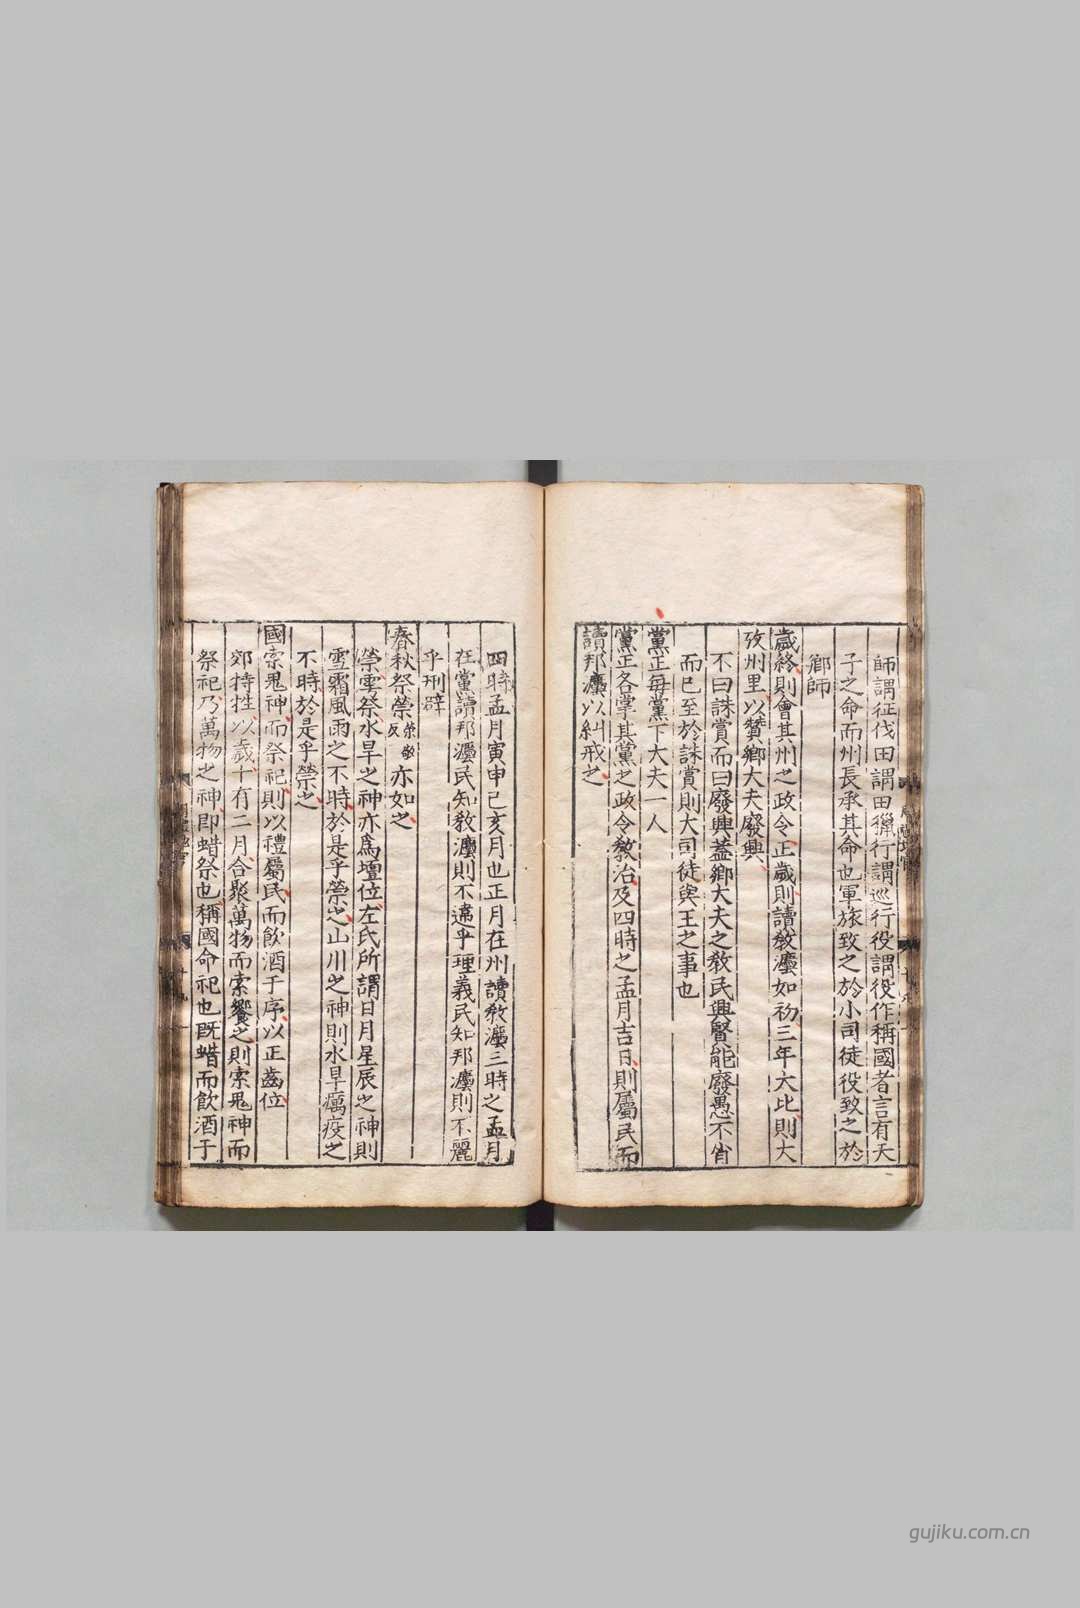 師謂征伐田謂田獵行謂巡行役謂役作稱國者言有天
子之命而州長承其命也軍旅致之於小司徒役致之於
鄉師
歲終則會其州之政令正歲則讀敎灋如初三年大比則大
攷州里以贊鄉大夫廢興
不曰誅賞而曰廢興蓋鄉大夫之敎民興賢能廢愚不肖
而已至於誅賞則大司徒與王之事也
黨正每黨下大夫一人
黨正各掌其黨之政令敎治及四時之孟月吉日則屬民而
讀邦灋以糾戒之
四時孟月寅申巳亥月也正月在州讀敎灋三時之孟月
在黨讀邦灋民知敎灋則不違乎理義民知邦灋則不麗
乎刑辟
春秋祭禜榮敬反亦如之
禜雩祭水旱之神亦爲壇位左氏所謂日月星辰之神則
雪霜風雨之不時於是乎禜之山川之神則水旱癘疫之
不時於是乎禜之
國索鬼神而祭祀則以禮屬民而飮酒于序以正齒位
郊特牲以歲十有二月合聚萬物而索饗之則索鬼神而
祭祀乃萬物之神即蜡祭也稱國命祀也既蜡而飮酒于
gujiku.com.cn